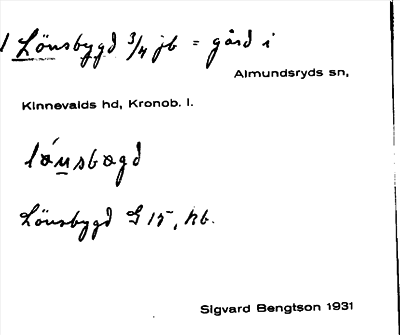 1 Lönsbygd 3/4 jb = gård i
Almundsryds sn,
Kinnevalds hd, Kronob. l.
lǿnsbøgd
Lönsbygd G 15, hb.
Sigvard Bengtson 1931